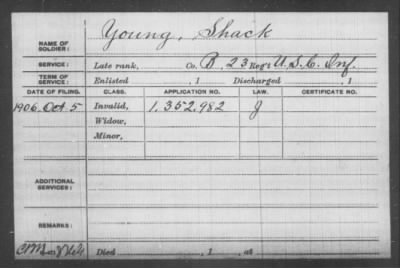 Young, Shack
NAME OF SOLDIER:
SERVICE: Late rank, Co. B, 23 Reg't U.S.C. Inf.
TERM OF SERVICE: Enlisted , 1 Discharged , 1
DATE OF FILING. CLASS. APPLICATION NO. LAW. CERTIFICATE NO.
1906. Oct. 5 Invalid, 1,352,982 J
Widow,
Minor,
ADDITIONAL SERVICES:
REMARKS:
Died , 1 , at